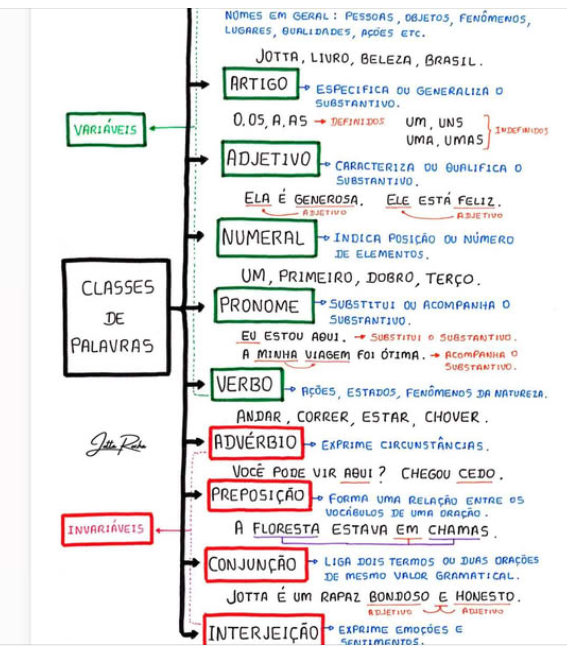 NOMES EM GERAL: PESSOAS, OBJETOS, FENÔMENOS,
LUGARES, QUALIDADES, AÇÕES ETC.
JOTTA, LIVRO, BELEZA, BRASIL.
ARTIGO
ESPECIFICA OU GENERALIZA O
SUBSTANTIVO.
O, OS, A, AS → DEFINIDOS
UM, UNS
UMA, UMAS
INDEFINIDOS
VARIÁVEIS
ADJETIVO
CARACTERIZA OU QUALIFICA O
SUBSTANTIVO.
ELA É GENEROSA. ELE ESTÁ FELIZ.
ADJETIVO ADJETIVO
NUMERAL
INDICA POSIÇÃO OU NÚMERO
DE ELEMENTOS.
UM, PRIMEIRO, DOBRO, TERÇO.
CLASSES
DE
PALAVRAS
PRONOME
SUBSTITUI OU ACOMPANHA O
SUBSTANTIVO.
EU ESTOU AQUI. → SUBSTITUI O SUBSTANTIVO.
A MINHA VIAGEM FOI ÓTIMA. → ACOMPANHA O
SUBSTANTIVO.
VERBO
AÇÕES, ESTADOS, FENÔMENOS DA NATUREZA.
ANDAR, CORRER, ESTAR, CHOVER.
Jotta Rocha
ADVÉRBIO
EXPRIME CIRCUNSTÂNCIAS.
VOCÊ PODE VIR AQUI? CHEGOU CEDO.
PREPOSIÇÃO
FORMA UMA RELAÇÃO ENTRE OS
VOCÁBULOS DE UMA ORAÇÃO.
A FLORESTA ESTAVA EM CHAMAS.
INVARIÁVEIS
CONJUNÇÃO
LIGA DOIS TERMOS OU DUAS ORAÇÕES
DE MESMO VALOR GRAMATICAL.
JOTTA É UM RAPAZ BONDOSO E HONESTO.
ADJETIVO ADJETIVO
INTERJEIÇÃO
EXPRIME EMOÇÕES E
SENTIMENTOS.